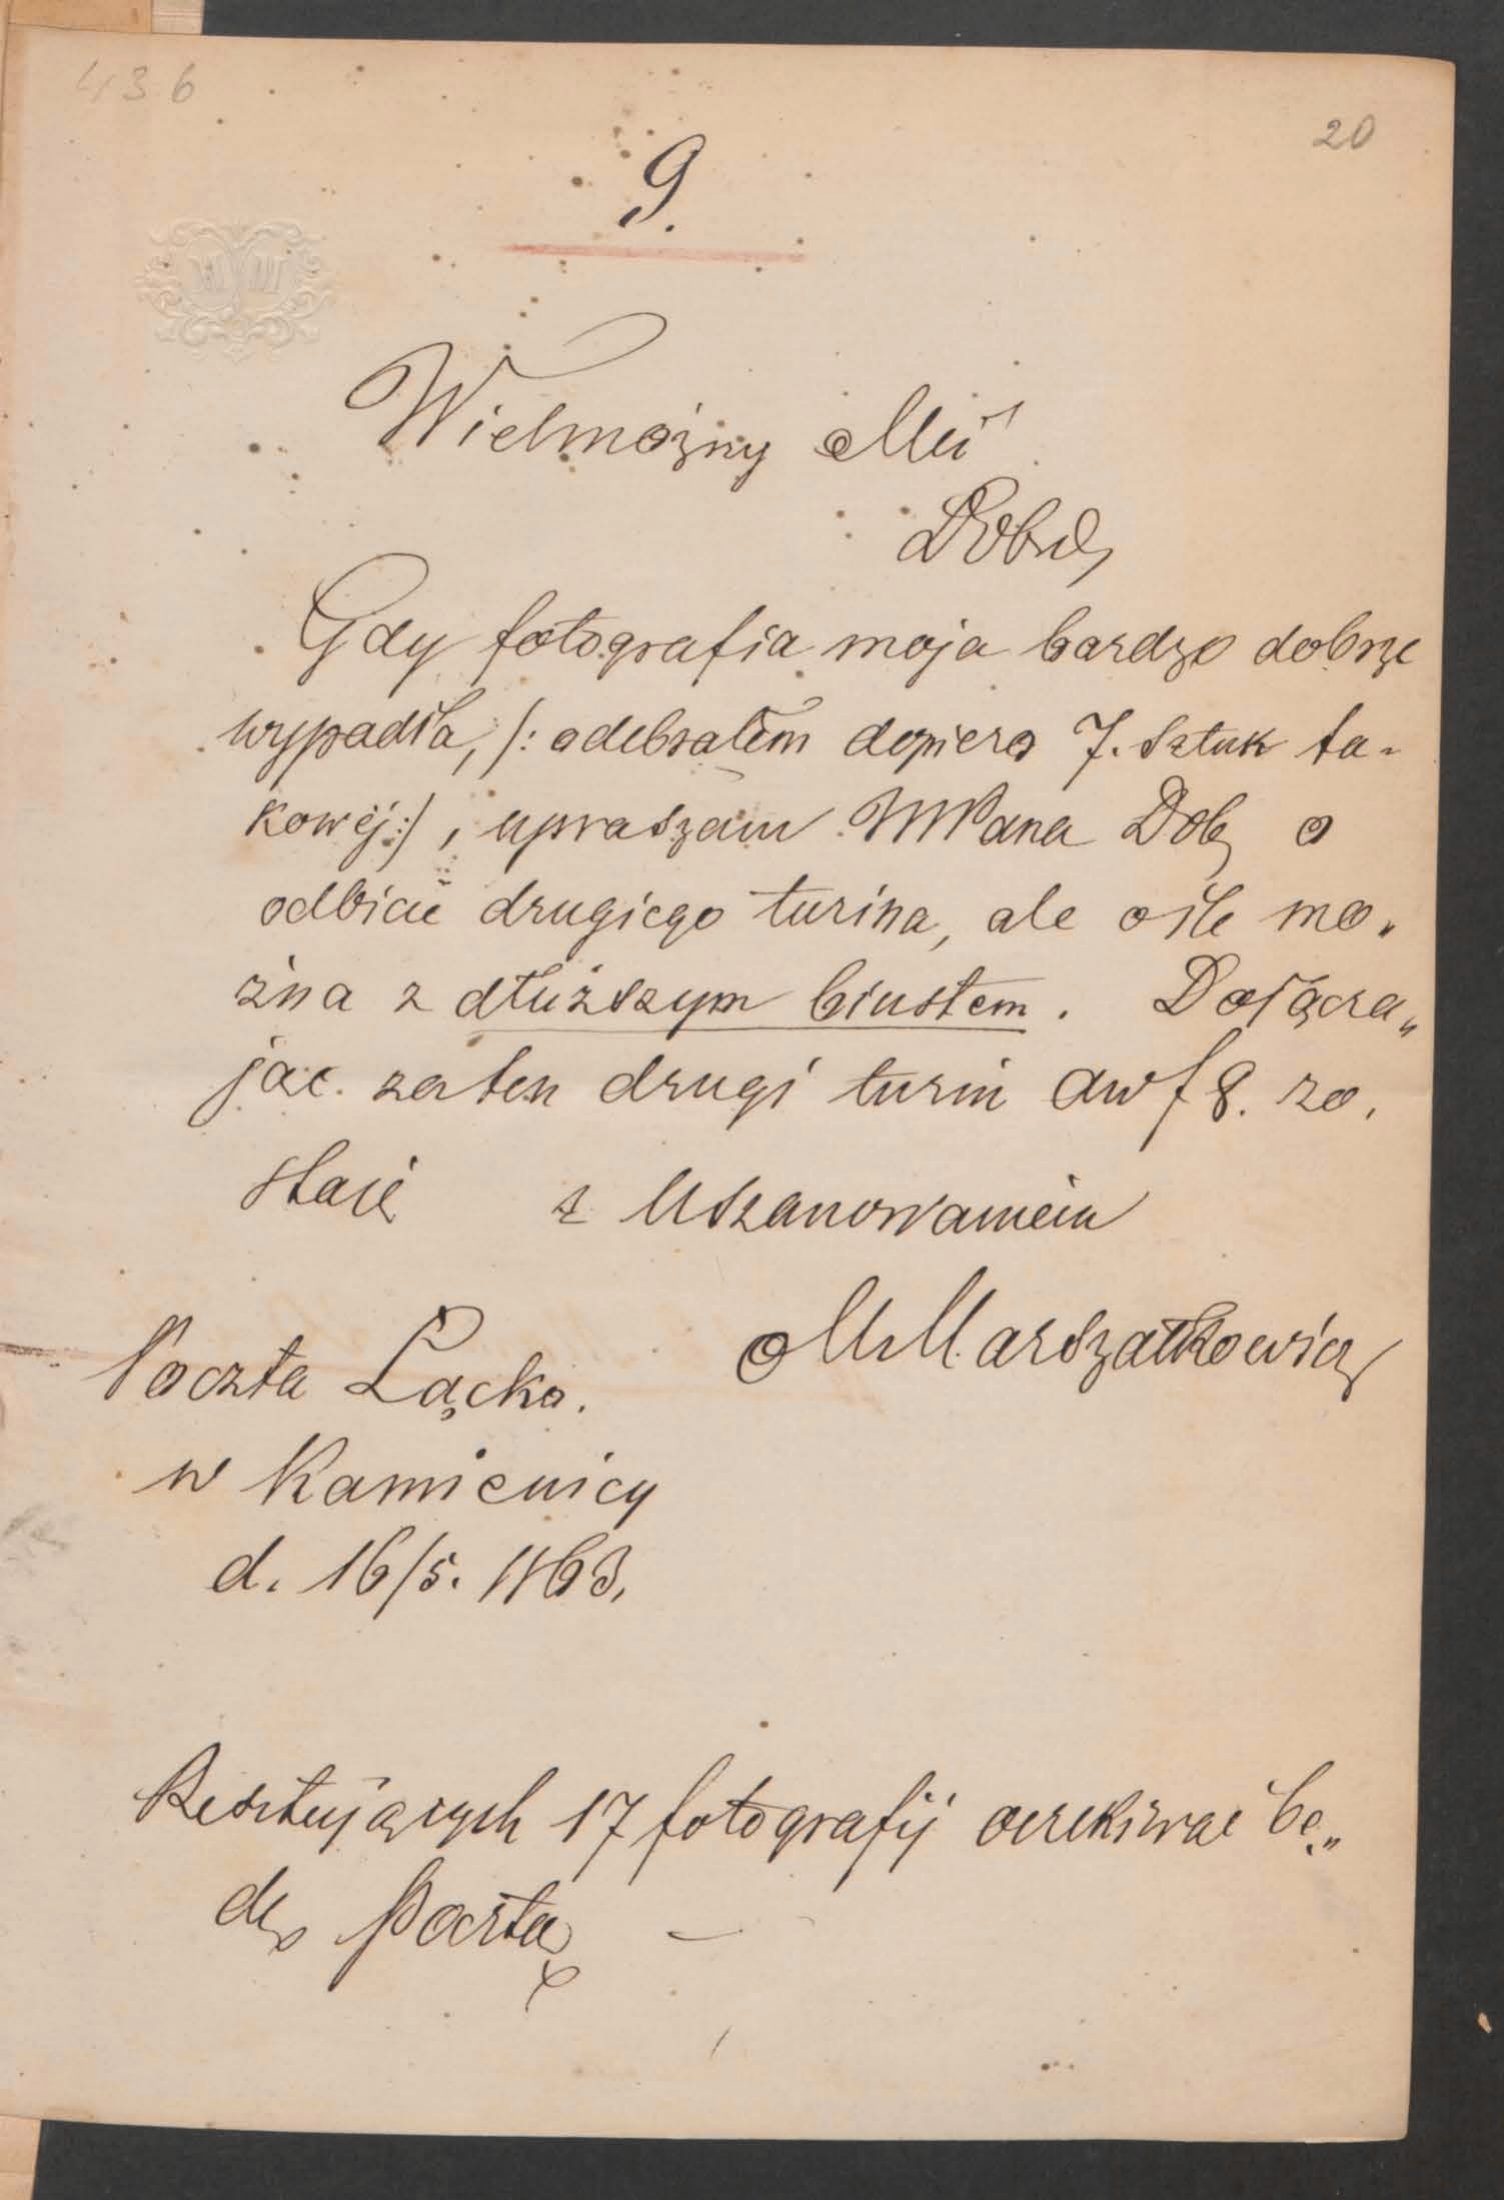 436
20
9.
Wielmożny Mci
Dobr.
Gdy fotografia moja bardzo dobrze
wypadła, /: odebrałem dopiero 7. sztuk ta-
kowéj :/, upraszam WPana Dob o
odbicie drugiego tuzina, ale oile mo„
żna z dłuższym biustem. Dołącza„
jąc za ten drugi tuzin aw f 8. zo,
staję z Uszanowaniem
M Marszałkowicz
Poczta Łącko.
w Kamienicy
d. 16/5. 1863.
Resztujących 17 fotografij oczekiwać bę„
dę pocztą –